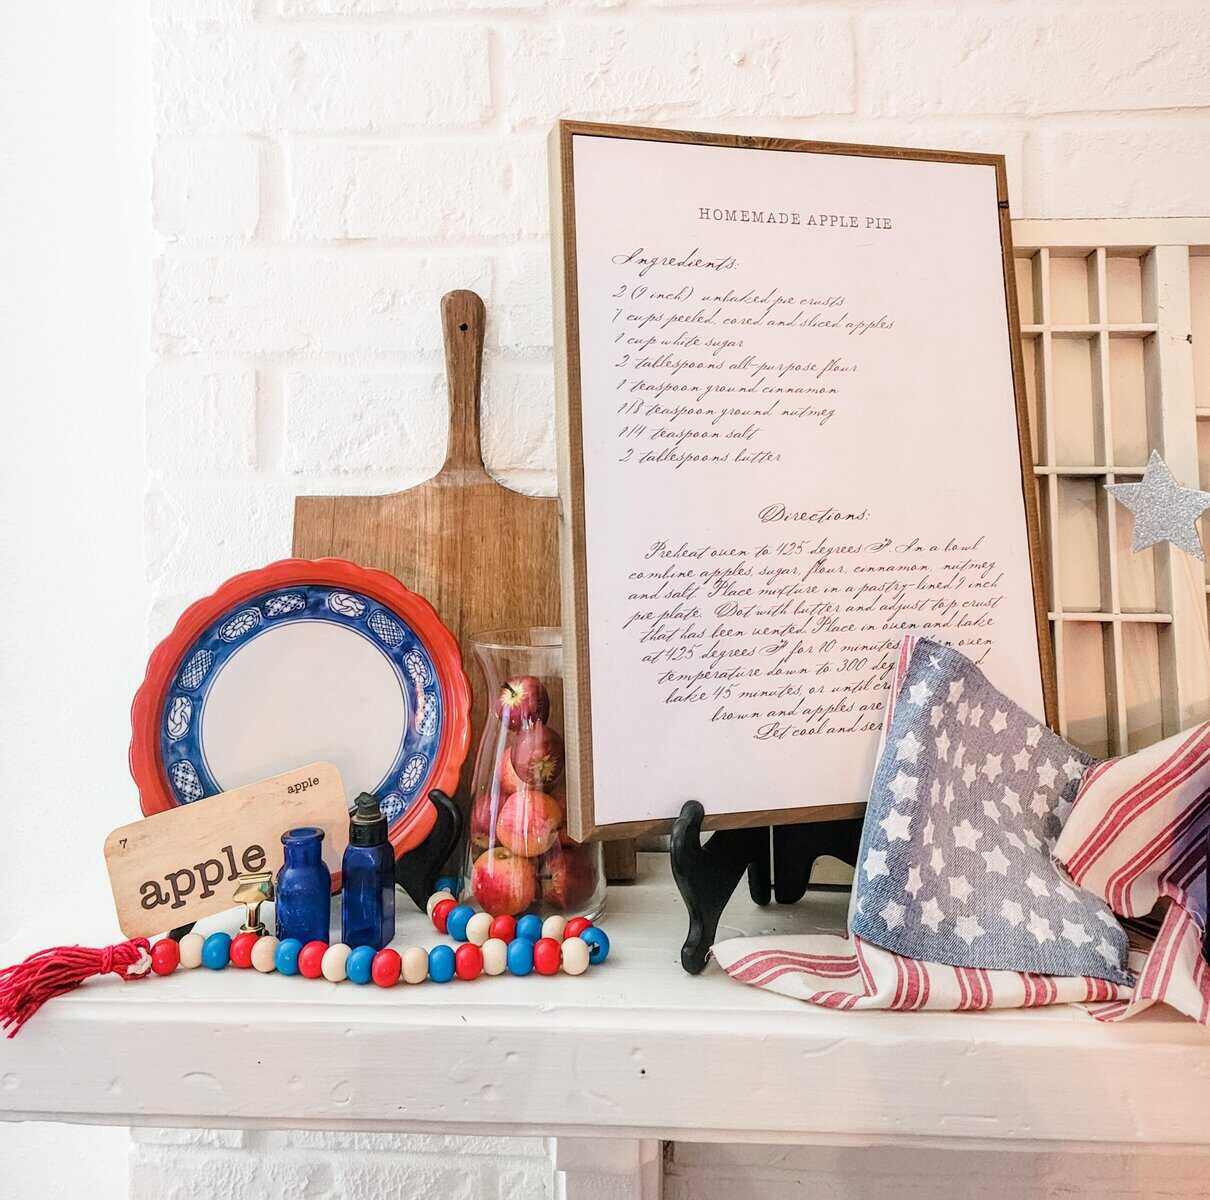 HOMEMADE APPLE PIE
Ingredients:
2 (9 inch) unbaked pie crusts
7 cups peeled, cored and sliced apples
1 cup white sugar
2 tablespoons all-purpose flour
1 teaspoon ground cinnamon
1/8 teaspoon ground nutmeg
1/4 teaspoon salt
2 tablespoons butter
Directions:
Preheat oven to 425 degrees F. In a bowl
combine apples, sugar, flour, cinnamon, nutmeg
and salt. Place mixture in a pastry-lined 9 inch
pie plate. Dot with butter and adjust top crust
that has been vented. Place in oven and bake
at 425 degrees F for 10 minutes. oven
temperature down to 300 deg
bake 45 minutes, or until
brown and apples are
Let cool and
apple
7
apple